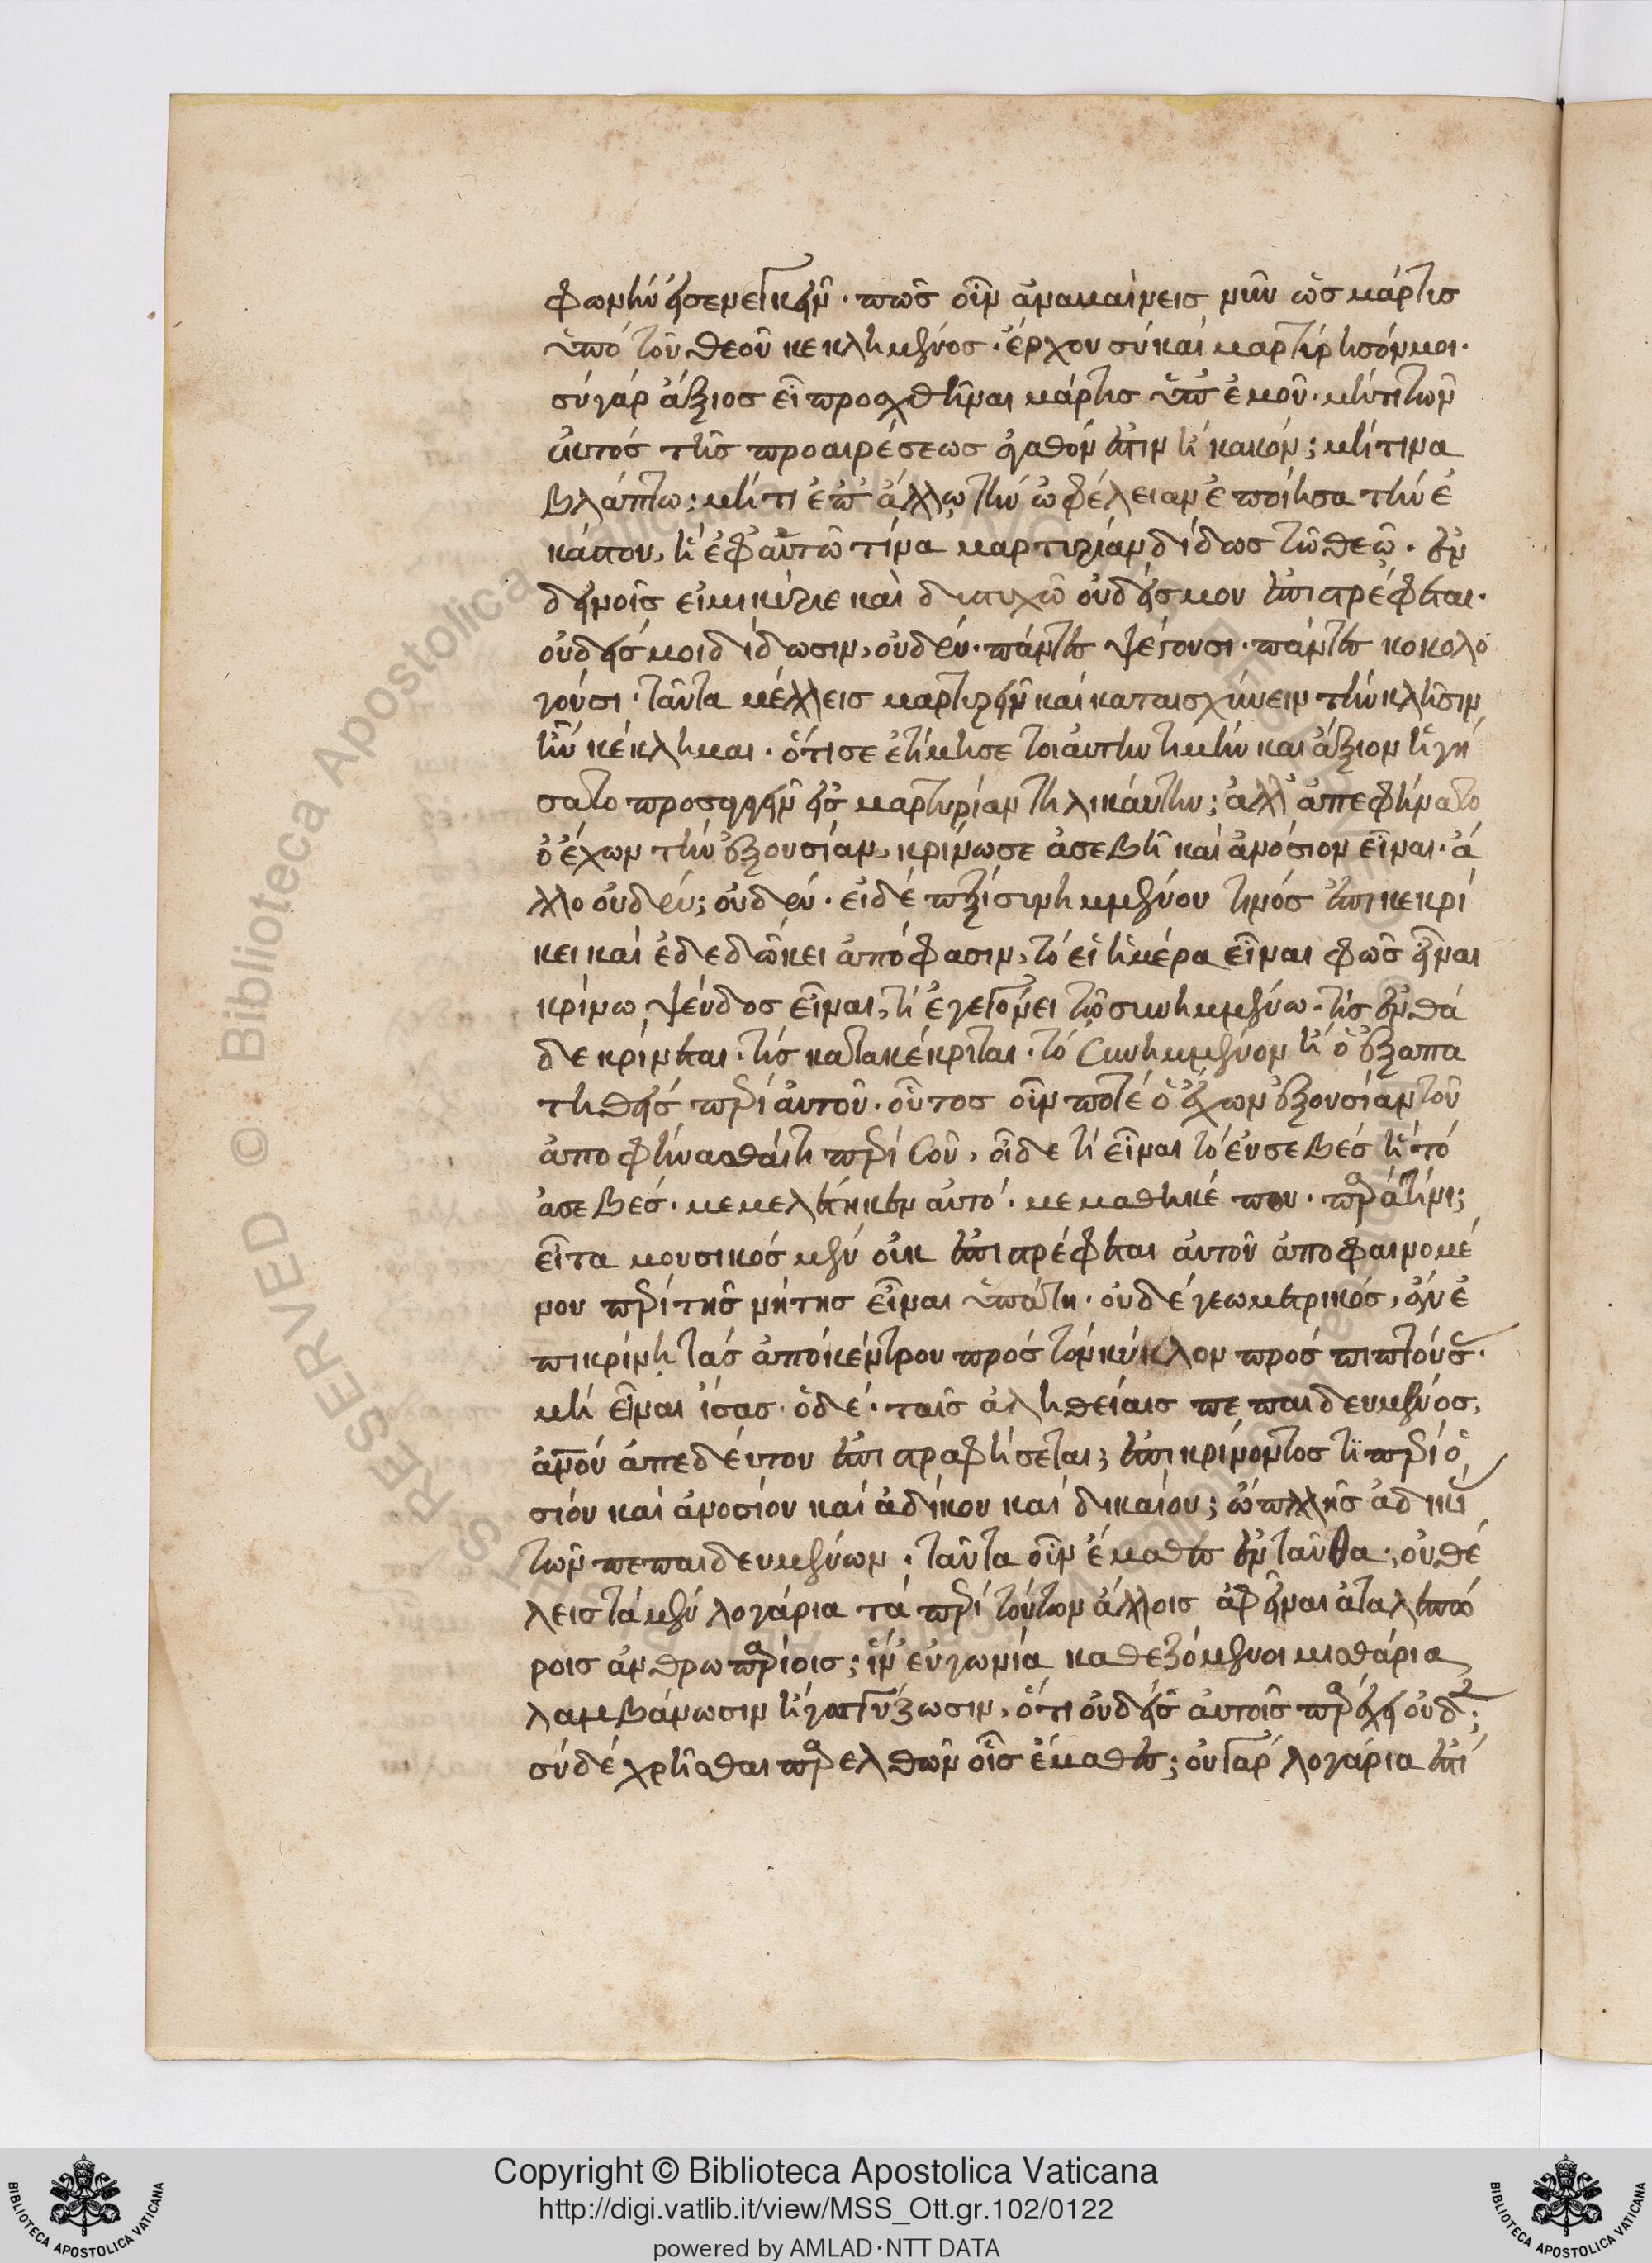 φωνὴν εἰσενεγκεῖν· πῶς οὖν ἀναβαίνεις νῦν ὡς μάρτις
ὑπὸ τοῦ θεοῦ κεκλημένος· ἔρχου σὺ καὶ μαρτύρησόν μοι·
σὺ γὰρ ἄξιος εἶ προαχθῆναι μάρτις ὑπ' ἐμοῦ· μήτι τῶν
ἐκτός τῆς προαιρέσεως ἀγαθόν ἐστιν ἢ κακόν; μή τινα
βλάπτω; μή τι ἐπ' ἄλλῳ τὴν ὠφέλειαν ἐποίησα τὴν ἑ
κάστου, ἢ ἐφ' αὑτῶ τίνα μαρτυρίαν δίδως τῶ θεῶ· ἐν
δεινοῖς εἰμι κύριε καὶ δυστυχῶ οὐδείς μου ἐπιστρέφεται·
οὐδείς μοι δίδωσιν, οὐδέν· πάντες ψέγουσι· πάντες κοκολο
γοῦσι· ταῦτα μέλλεις μαρτυρεῖν καὶ καταισχύνειν τὴν κλῆσιν
ἣν κέκλημαι· ὅτι σε ἐτίμησε τοιαύτην τιμὴν καὶ ἄξιον ἡγή
σατο προσαγαγεῖν εἰς μαρτυρίαν τηλικαύτην; ἀλλ' ἀπεφήνατο
ὁ ἔχων τὴν ἐξουσίαν, κρίνω σε ἀσεβῆ καὶ ἀνόσιον εἶναι· ἄ
λλο οὐδέν; οὐδέν· εἰ δὲ περί συνημμένου τινός ἐπικεκρί
κει καὶ ἐδεδώκει ἀπόφασιν, τὸ εἰ ἡμέρα εἶναι φῶς εἶναι
κρίνω ψεῦδος εἶναι, τί ἐγεγόνει τῶ συνημμένω· τίς ἐνθά
δε κρίνεται· τίς κατακέκριται· τὸ συνημμένον ἢ ὁ ἐξαπα
τηθείς περὶ αὐτοῦ· οὗτος οὖν ποτέ ὁ ἔχων ἐξουσίαν τοῦ
ἀποφήνασθαί τι περὶ σοῦ, οἶδε τί εἶναι τὸ εὐσεβές ἢ τὸ
ἀσεβές· μεμελέτηκεν αὐτό· μεμάθηκέ που· παρὰ τίνι;
εἶτα μουσικός μὲν οὐκ ἐπιστρέφεται αὐτοῦ ἀποφαινομέ
νου περὶ τῆς νήτης εἶναι ὑπάτη· οὐδέ γεωμετρικός, ἂν ἐ
πικρίνῃ τάς ἀπὸ κέντρου πρός τὸν κύκλον προσπιπτούσ
μή εἶναι ἴσας· ὁ δέ· ταῖς ἀληθείαις πεπαιδευμένος,
ἀνοῦ ἀπεδεύτου ἐπιστραφήσεται; ἐπικρίνοντός τι περὶ ὁ
σίου καὶ ἀνοσίου καὶ ἀδίκου καὶ δικαίου; ὢ πολλῆς ἀδικί
τῶν πεπαιδευμένων· ταῦτα οὖν ἔμαθες ἐνταῦθα; οὐ θέ
λεις τὰ μὲν λογάρια τὰ περὶ τούτων ἄλλοις ἀφεῖναι ἀταλεπώ
ροις ἀνθρωπαρίοις; ἵν' ἐν γωνία καθεζόμενοι μισθάρια
λαμβάνωσιν ἢ γογγύζωσιν, ὅτι οὐδεὶς αὐτοῖς παρέχει οὐδ;
σὺ δὲ χρῆσθαι παρελθὼν οἷς ἔμαθες; οὐ γὰρ λογάρια ἐστί